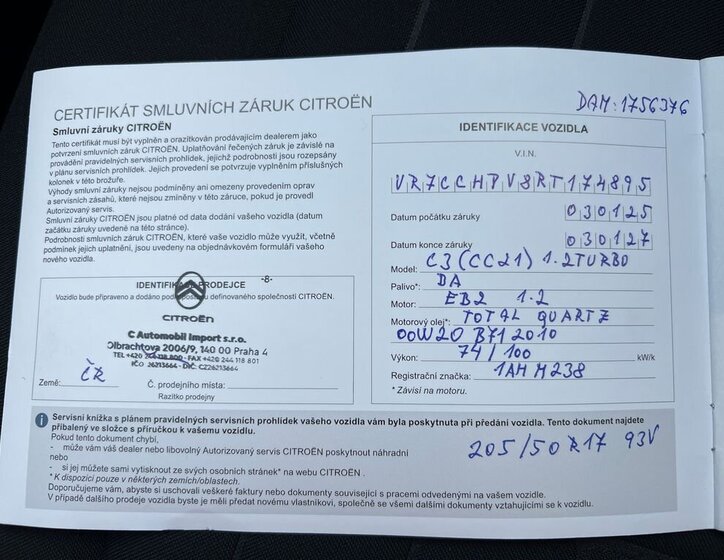 DAM:1756376
CERTIFIKÁT SMLUVNÍCH ZÁRUK CITROËN
Smluvní záruky CITROËN
Tento certifikát musí být vyplněn a orazítkován prodávajícím dealerem jako
potvrzení smluvních záruk CITROËN. Uplatňování řečených záruk je závislé na
provádění pravidelných servisních prohlídek, jejichž podrobnosti jsou rozepsány
v plánu servisních prohlídek. Jejich provedení se potvrzuje vyplněním příslušných
kolonek v této brožuře.
Výhody smluvních záruk nejsou podmíněny ani omezeny provedením oprav
a servisních zásahů, které nejsou zmíněny v této záruce, pokud je provedl
Autorizovaný servis.
Smluvní záruky CITROËN jsou platné od data dodání vašeho vozidla (datum
začátku záruky uvedené na této stránce).
Podrobnosti smluvních záruk CITROËN, které vaše vozidlo může využít, včetně
podmínek jejich uplatnění, jsou uvedeny na objednávkovém formuláři vašeho
nového vozidla.
-8-
IDENTIFIKACE PRODEJCE
Vozidlo bude připraveno a dodáno podle postupu definovaného společností CITROËN.
CITROËN
C Automobil Import s.r.o.
Olbrachtova 2006/9, 140 00 Praha 4
FAX +420 244 118 801
IČO 26213664 · DIČ: CZ26213664
Země: ČR
Č. prodejního místa:
Razítko prodejny
IDENTIFIKACE VOZIDLA
V.I.N.
VR7CCHPV8RT174895
Datum počátku záruky 030125
Datum konce záruky 030127
Model: C3 (CC21) 1.2TURBO
Palivo*: DA
Motor: EB2 1.2
Motorový olej*: TOTAL QUARTZ
00W20 B71 2010
Výkon: 74/100 kW/k
Registrační značka: 1AM M238
* Závisí na motoru.
i
Servisní knížka s plánem pravidelných servisních prohlídek vašeho vozidla vám byla poskytnuta při předání vozidla. Tento dokument najdete
přibalený ve složce s příručkou k vašemu vozidlu.
Pokud tento dokument chybí,
- může vám váš dealer nebo libovolný Autorizovaný servis CITROËN poskytnout náhradní
nebo
- si jej můžete sami vytisknout ze svých osobních stránek* na webu CITROËN .
* K dispozici pouze v některých zemích/oblastech.
205/50 R17 93V
Doporučujeme vám, abyste si uschovali veškeré faktury nebo dokumenty související s pracemi odvedenými na vašem vozidle.
V případě dalšího prodeje vozidla byste je měli předat novému vlastníkovi, společně se všemi dalšími dokumenty vztahujícími se k vozidlu.